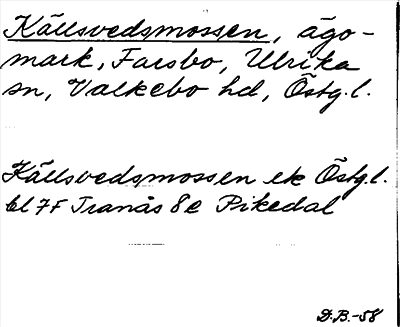 Källsvedsmossen, ägo-
mark, Farsbo, Ulrika
sn, Valkebo hd, Östg.l.
Källsvedsmossen ek Östg.l.
bl 7F Tranås 8e Pikedal
D.B.-58